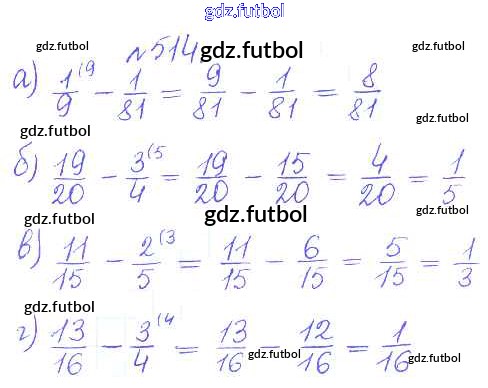 gdz.futbol
№514 gdz.futbol
gdz.futbol gdz.futbol
а) 1/9 (9 − 1/81 = 9/81 − 1/81 = 8/81
gdz.futbol gdz.futbol
б) 19/20 − 3/4 (5 = 19/20 − 15/20 = 4/20 = 1/5
gdz.futbol gdz.futbol gdz.futbol
в) 11/15 − 2/5 (3 = 11/15 − 6/15 = 5/15 = 1/3
gdz.futbol
г) 13/16 − 3/4 (4 = 13/16 − 12/16 = 1/16
gdz.futbol gdz.futbol